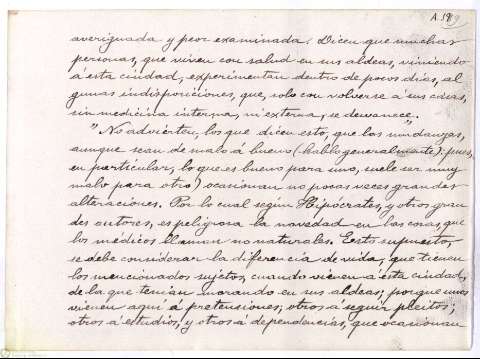 A 189
averiguada y peor examinada. Dicen que muchas
personas, que viven con salud en sus aldeas, viniendo
á esta ciudad, experimentan dentro de pocos dias, al
gunas indisposiciones, que, solo con volverse á sus casas,
sin medicina interna, ni externa, se desvanece."
"No advierten, los que dicen esto, que las mudanzas,
aunque sean de malo á bueno (hablo generalmente): pues,
en particular, lo que es bueno para uno, suele ser muy
malo para otro) ocasionan no pocas veces grandes
alteraciones. Por lo cual según Hipócrates, y otros gran
des autores, es peligrosa la novedad en las cosas, que
los médicos llaman no naturales. Esto supuesto,
se debe considerar la diferencia de vida, que tienen
los mencionados sujetos, cuando vienen á esta ciudad,
de la que tenían morando en sus aldeas; porque unos
vienen aquí á pretensiones; otros á seguir pleitos;
otros á estudios, y otros á dependencias, que ocasionan